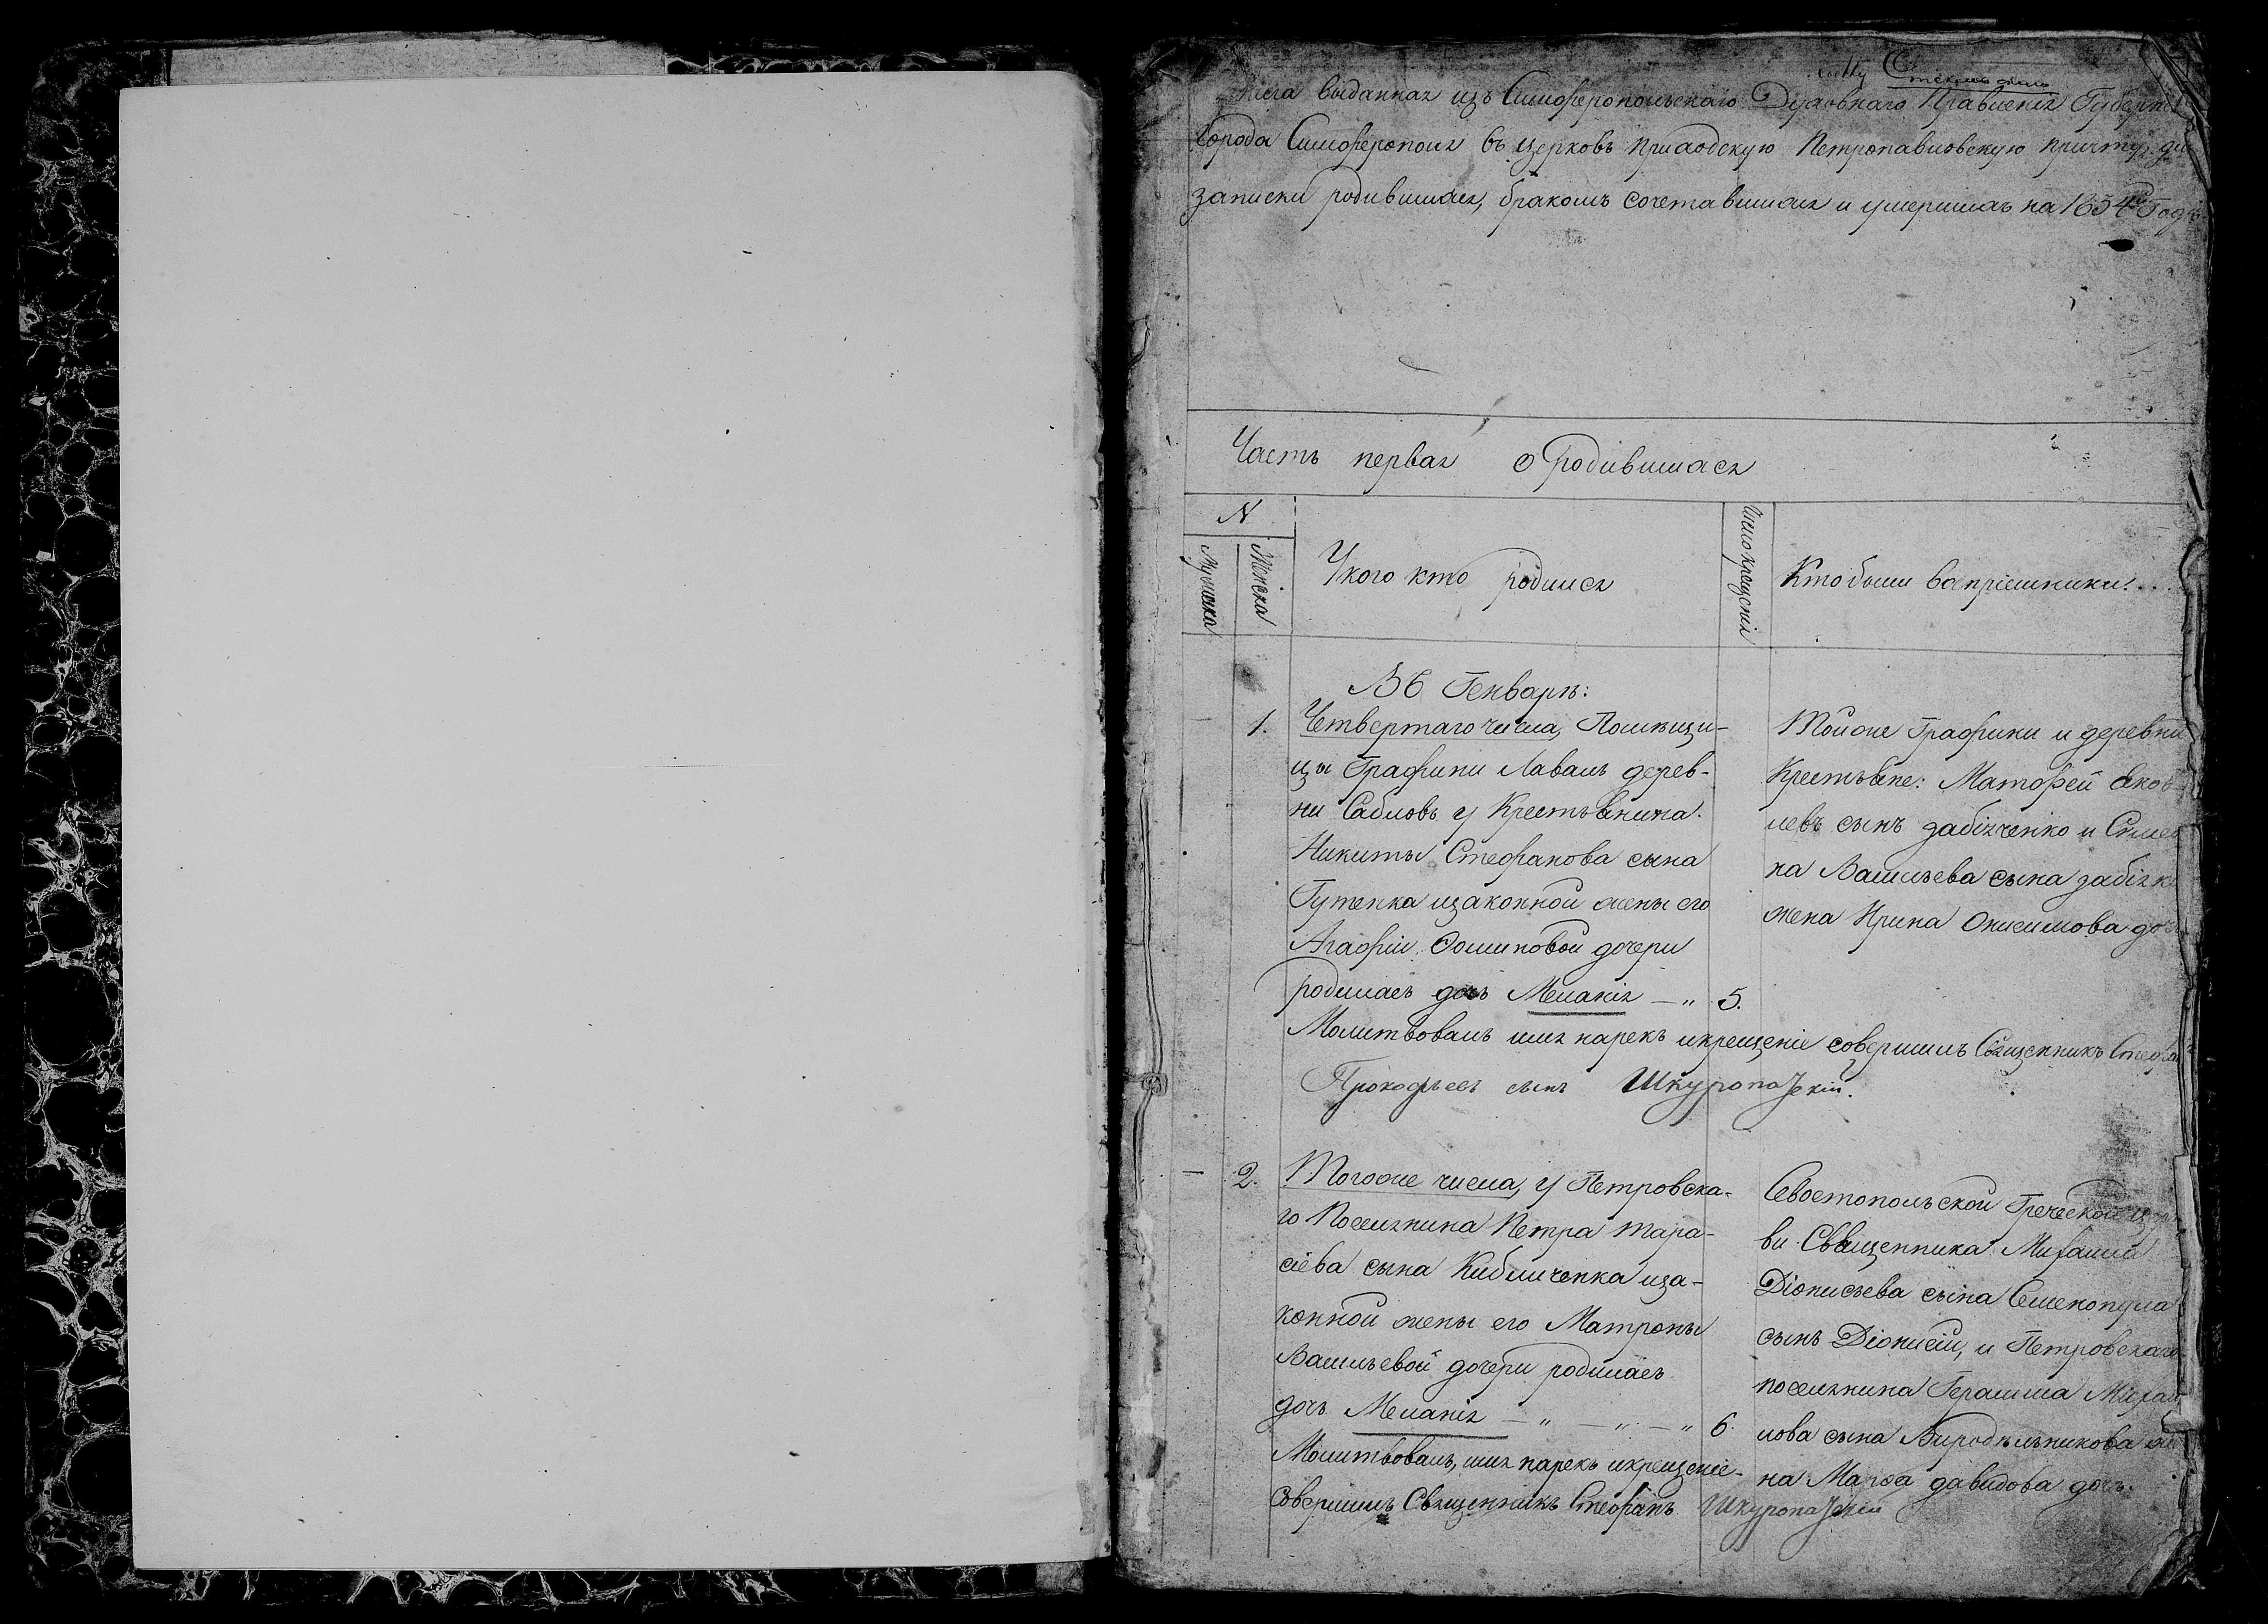 Книга выданная изъ Симферопольскаго Духовнаго Правленія Губерн
Города Симферополя въ церковь приходскую Петропавловскую причту, для
записки родившихся, бракомъ сочетавшихся и умершихъ на 1834й Годъ.
Часть первая о родившихся
N
Мужеска
Женска
У кого кто родился
Число крещенія
Кто были воспріемники
Въ Генварѣ:
1. Четвертаго числа, Помѣщи-
цы Графини Лаваль дерев-
ни Сабловъ у Крестьянина
Никиты Стефанова сына
Гутенка изаконной жены его
Агафіи Фоминовой дочери
родилась дочь Меланія — „ 5.
Тойже Графини и деревни
Крестьяне: Матфей Яков
левъ сынъ забіяченко и Симео
на Васильева сына забіяк
жена Ирина Онисимова доч
Молитвовалъ имя нарекъ икрещеніе совершилъ Священникъ Стефа
Прокофьевъ сынъ Шкуропадскій.
— 2. Тогоже числа, у Петровска-
го Поселянина Петра Тара-
сіева сына Кибличенка иза-
конной жены его Матроны
Васильевой дочери родилась
дочь Меланія — „ — „ — „ 6.
Севостопольской Греческой цер
ви Священника Михаила
Діонисьева сына Семенопула
сынъ Діонисій, и Петровскаго
поселянина Герасима Михай
лова сына Виродѣльникова же
на Марфа давидова дочь.
Молитвовалъ, имя нарекъ икрещеніе
Совершилъ Священникъ Стефанъ Шкуропадскій